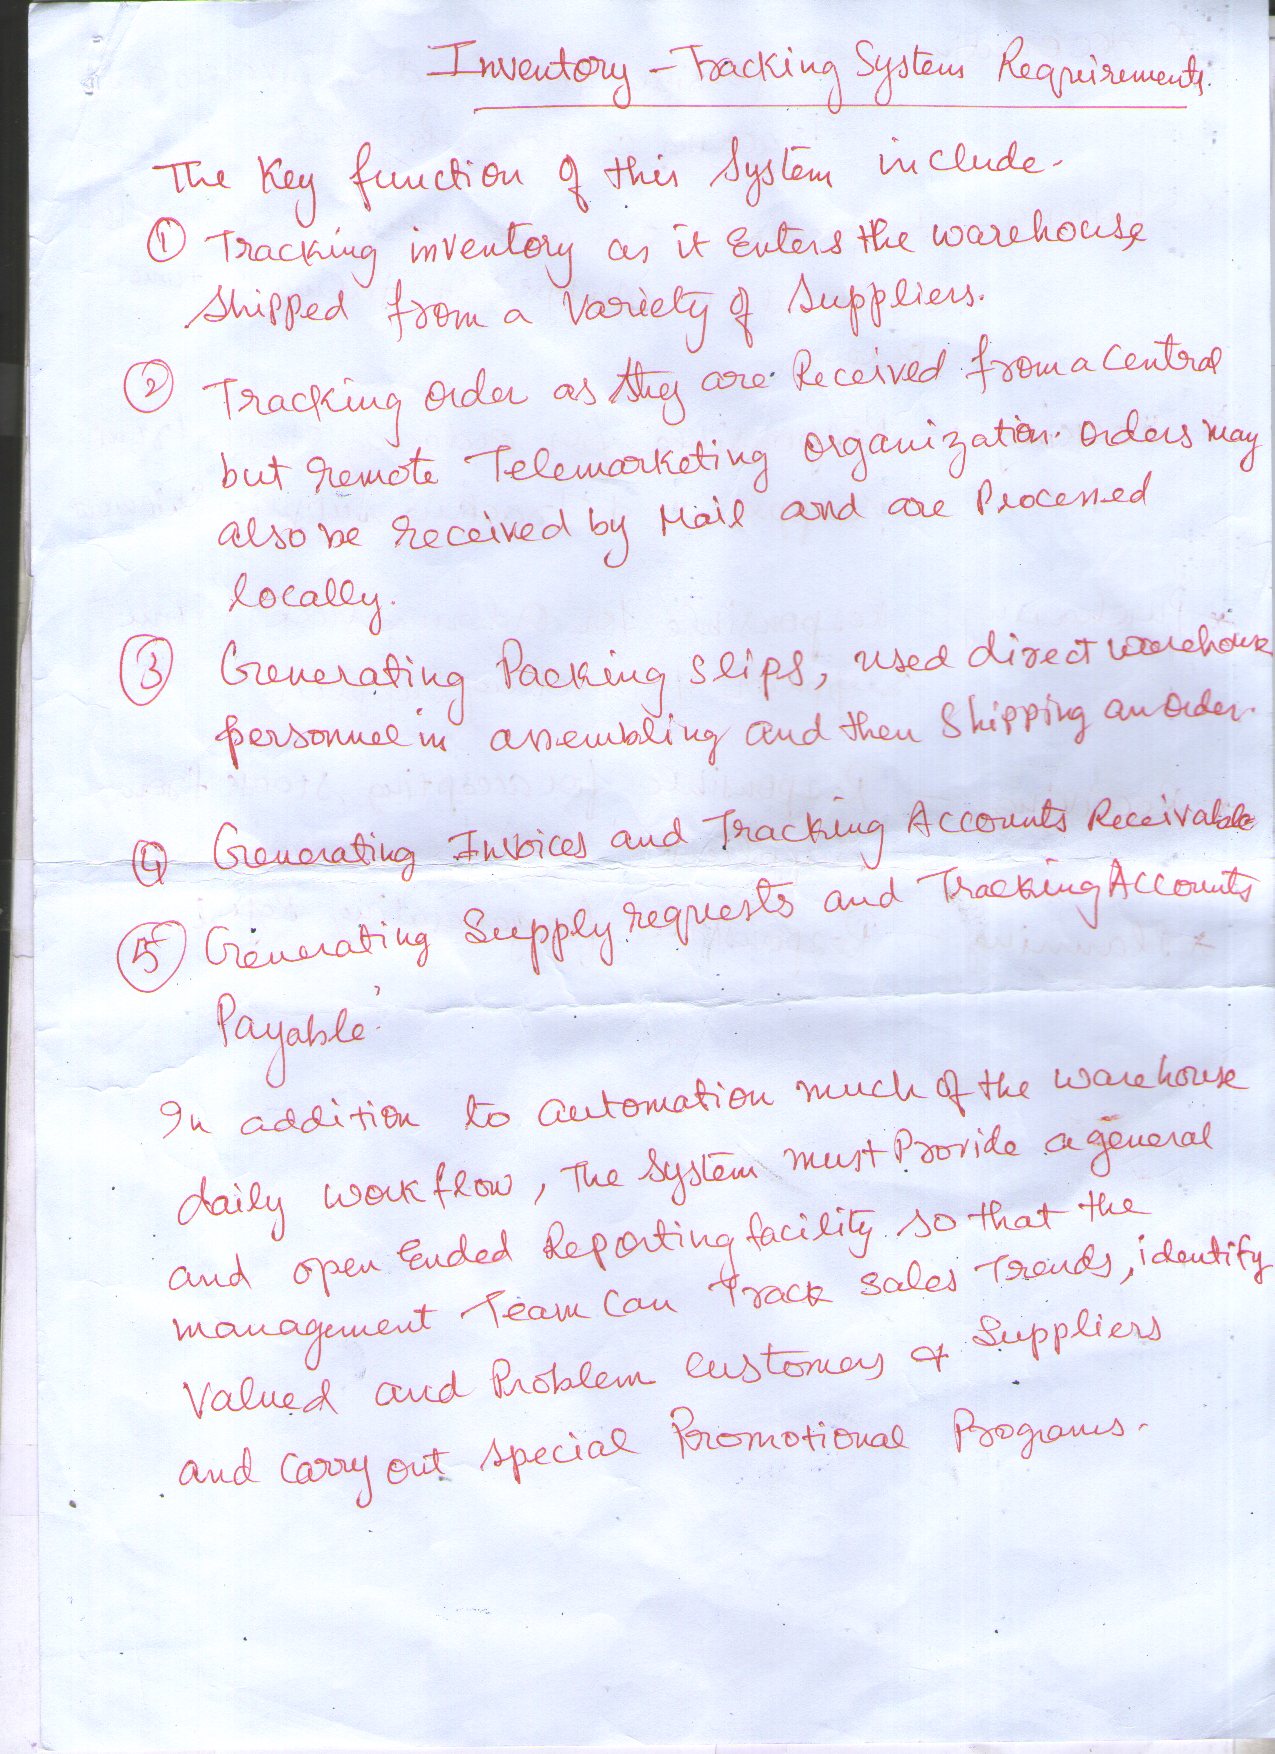 Inventory - Tracking System Requirements.
The Key function of this System include.
① Tracking inventory as it Enters the warehouse
Shipped from a Variety of Suppliers.
② Tracking order as they are Received from a Central
but remote Telemarketing organization. Orders may
also be received by Mail and are Processed
locally.
③ Generating Packing slips, used direct warehouse
personnel in assembling and then Shipping an order.
④ Generating Invoices and Tracking Accounts Receivable
⑤ Generating Supply requests and Tracking Accounts
Payable.
In addition to automation much of the warehouse
daily workflow, The System must Provide a general
and open Ended Reporting facility so that the
management Team Can Track sales Trends, identify
Valued and Problem Customers & Suppliers
and Carry out special Promotional Programs.